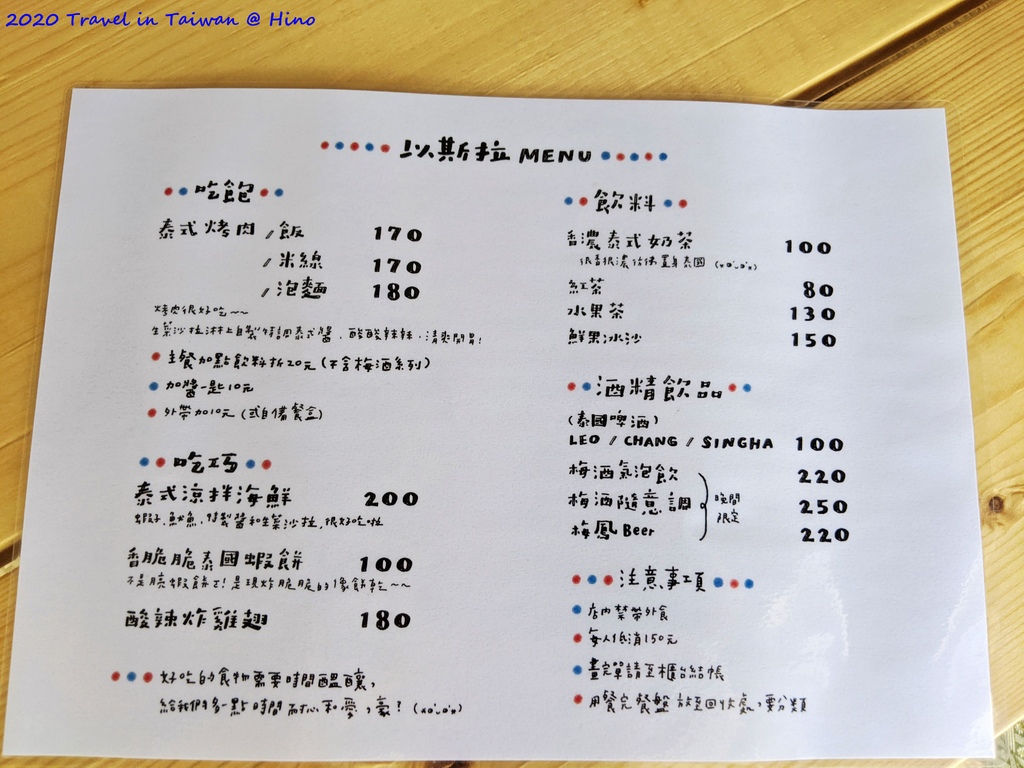 2020 Travel in Taiwan @ Hino
以斯拉 MENU
吃飽
泰式烤肉 / 飯 170
/ 米線 170
/ 泡麵 180
烤肉很好吃~~
生菜沙拉淋上自製特調泰式醬，酸酸辣辣，清爽開胃!
主餐加點飲料折20元(不含梅酒系列)
加醬一匙10元
外帶加10元 (或自備餐盒)
吃巧
泰式涼拌海鮮 200
蝦子、魷魚、特製醬和生菜沙拉，很好吃啦
香脆脆泰國蝦餅 100
不是月亮蝦餅ㄛ!是現炸脆脆的像餅乾~~
酸辣炸雞翅 180
好吃的食物需要時間醞釀，
給我們多一點時間耐心和愛，豪?
飲料
香濃泰式奶茶 100
很香很濃彷彿置身泰國
紅茶 80
水果茶 130
鮮果冰沙 150
酒精飲品
(泰國啤酒)
LEO / CHANG / SINGHA 100
梅酒氣泡飲 220
梅酒隨意調 250
梅鳳Beer 220
晚間
限定
注意事項
店內禁帶外食
每人低消150元
畫完單請至櫃台結帳
用餐完餐盤放至回收處，要分類